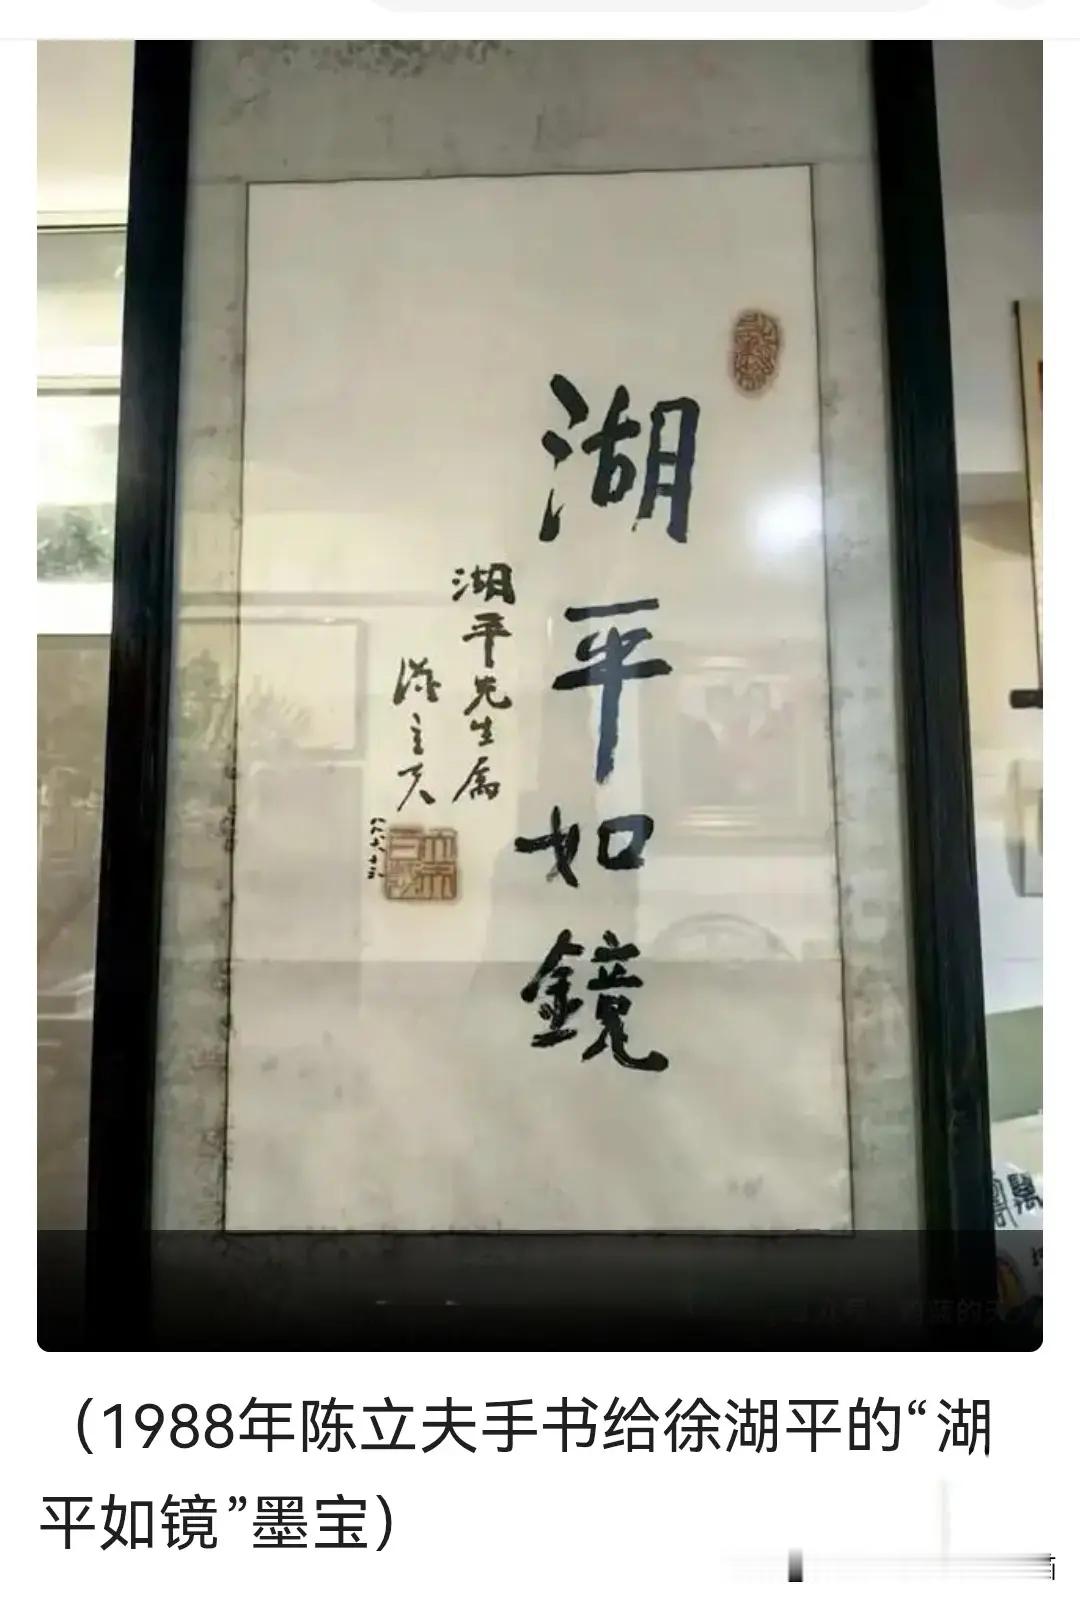 湖平如鏡
湖平先生屬
陳立夫
（1988年陈立夫手书给徐湖平的“湖
平如镜”墨宝）